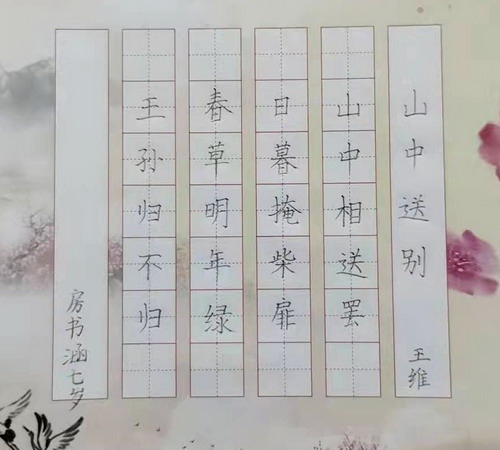 山中送别
王维
山中相送罢
日暮掩柴扉
春草明年绿
王孙归不归
房书涵七岁